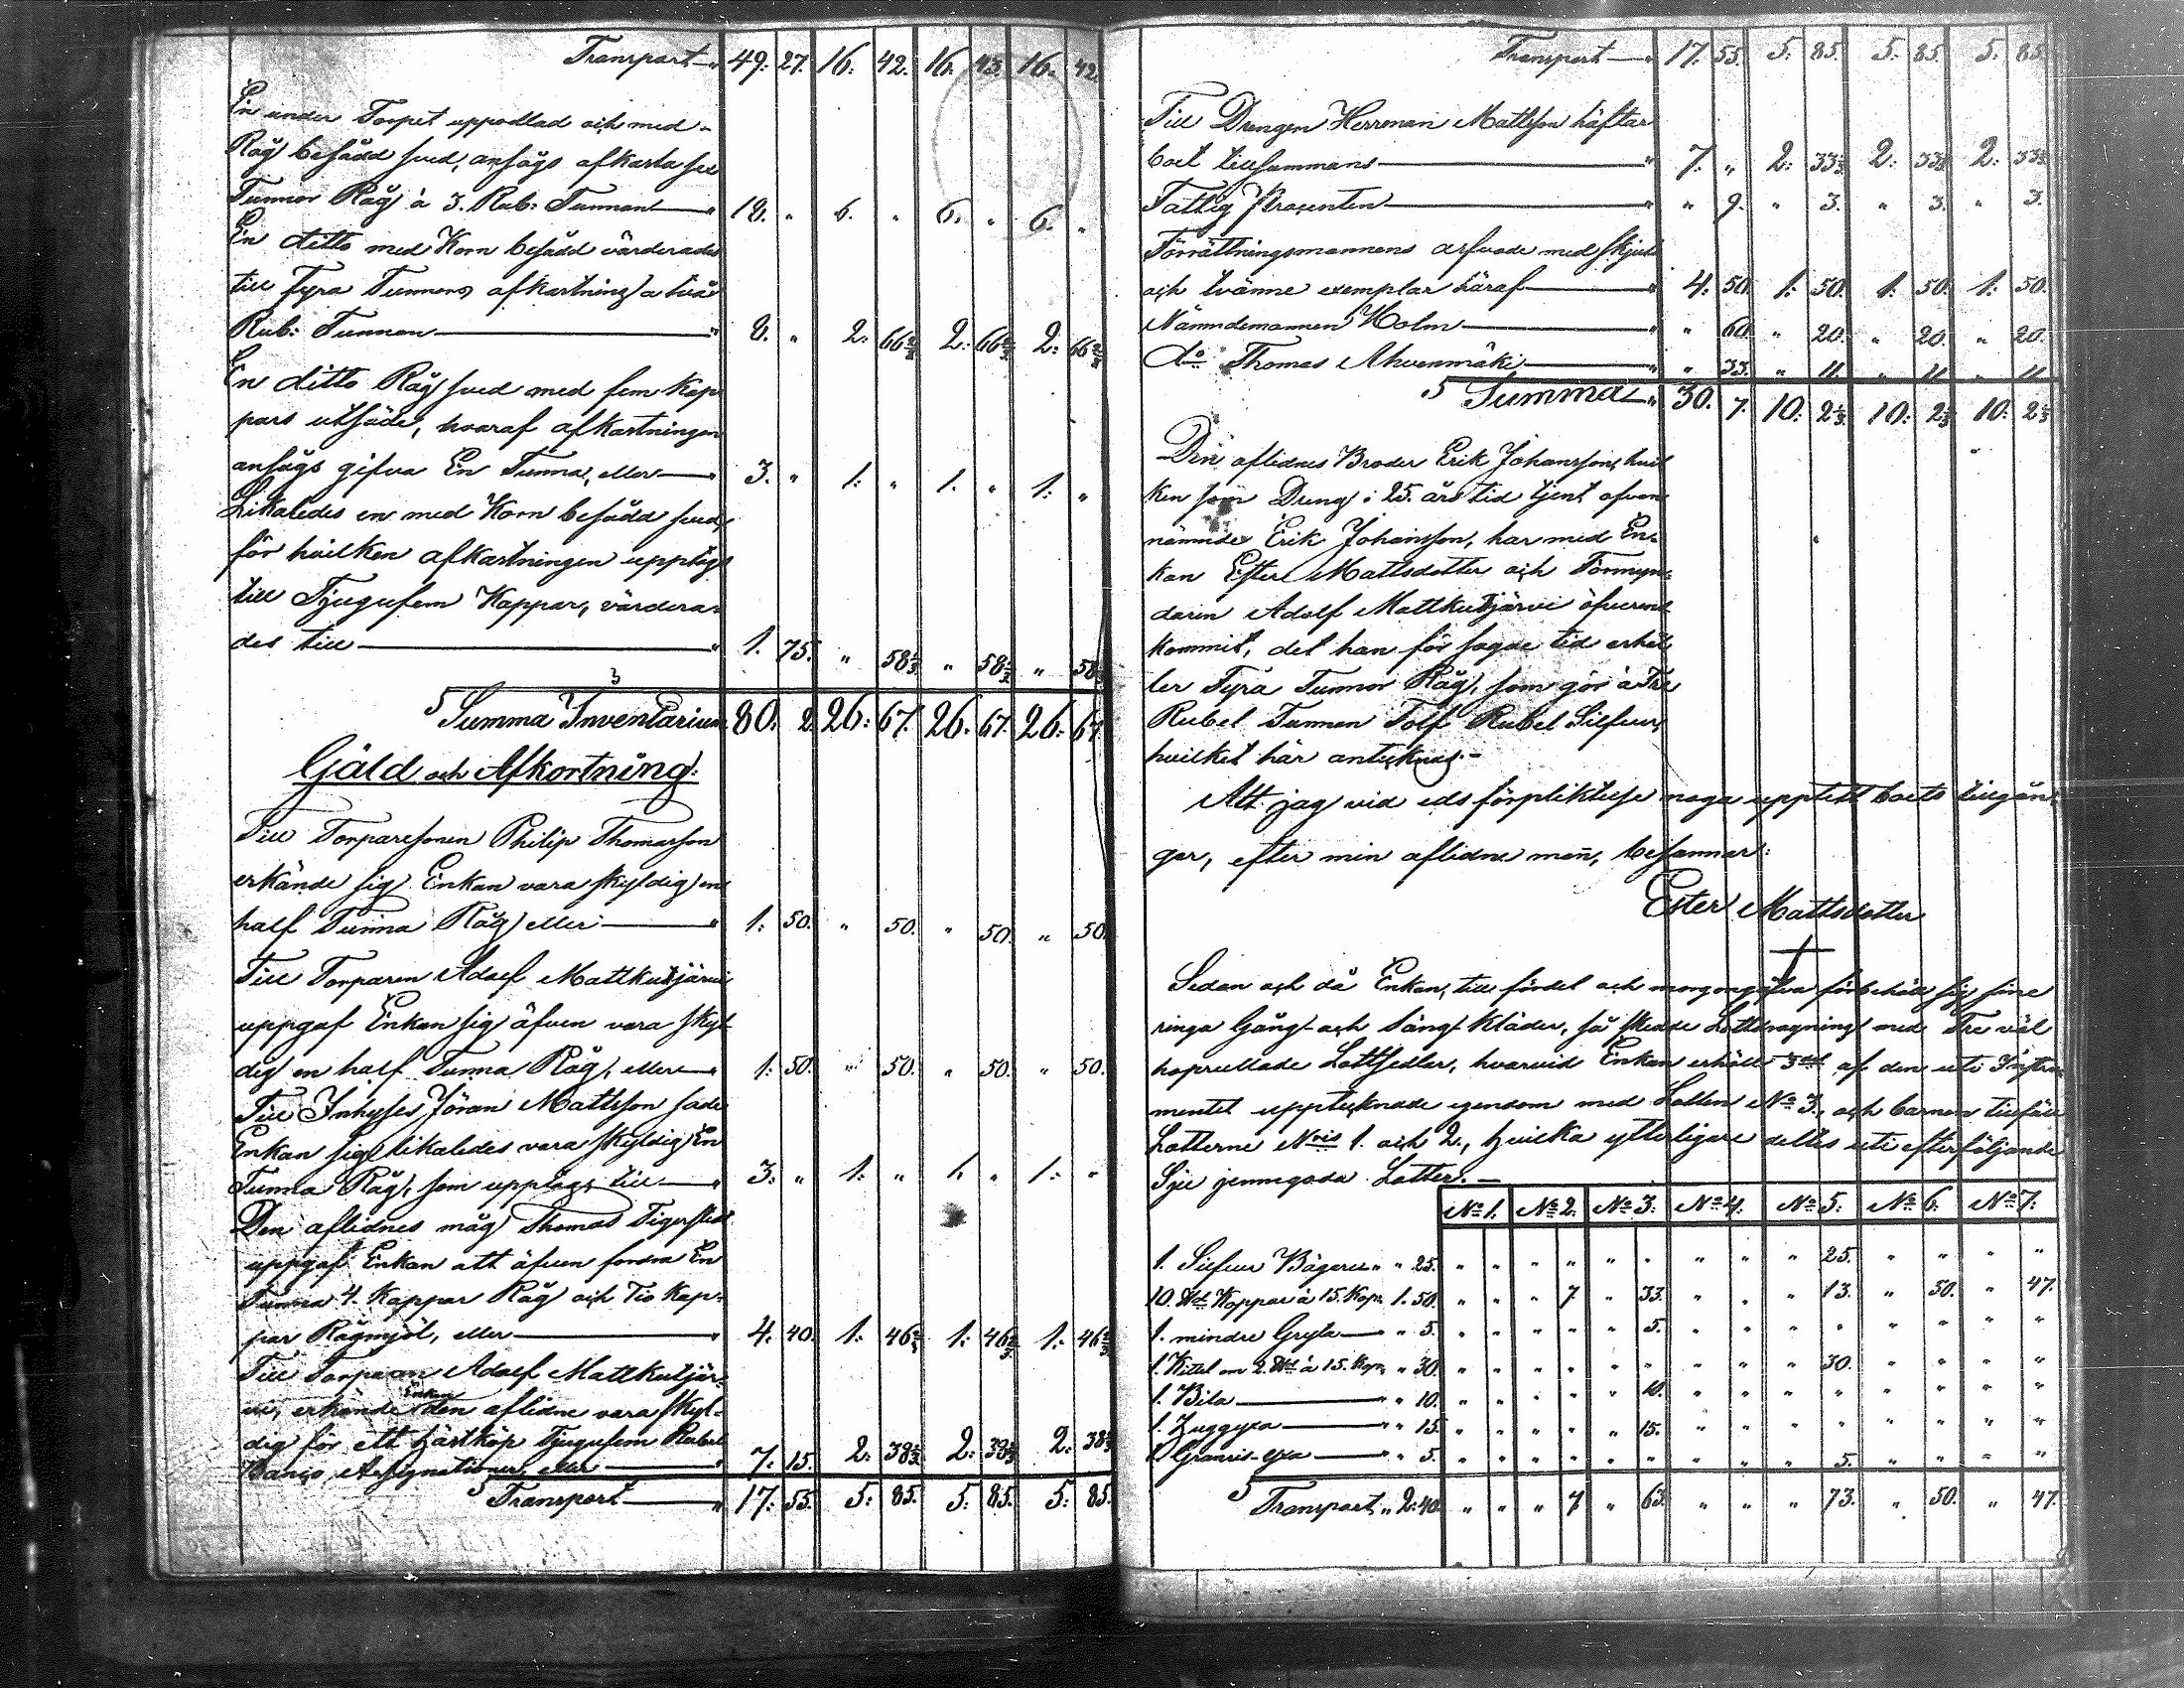 Transport " 49. 27. 16. 42. 16. 43. 16. 42.
En under Torpet uppodlad och med
Råg besådd sved, ansågs afkasta sex
Tunnor Råg à 3. Rub: Tunnan " 18. " 6. " 6. " 6. "
En ditto med Korn besådd värderades
till Fyra Tunnors afkastning a två
Rub: Tunnan " 8. " 2: 66⅔ 2: 66⅔ 2: 66⅔
En ditto Råg sved med fem Kap-
pars utsäde, hvaraf afkastningen
ansågs gifva En Tunna, eller " 3. " 1: " 1. " 1: "
Likaledes en med Korn besådd sved,
för hvilken afkastningen upptogs
till Tjugufem Kappar, värdera-
des till " 1. 75. " 58⅓ " 58⅓ " 58⅓
Summa Inventarium 80. 2. 26: 67. 26. 67. 26: 67.
Gäld och Afkortning:
Till Torparesonen Philip Thomasson
erkände sig Enkan vara skyldig en
half Tunna Råg eller " 1: 50. " 50. " 50. " 50.
Till Torparen Adolf Mattkutjärvi
uppgaf Enkan sig äfven vara skyl-
dig en half Tunna Råg, eller " 1: 50. " 50. " 50. " 50.
Till Inhyses Jöran Mattsson sade
Enkan sig likaledes vara skyldig En
Tunna Råg, som upptogs till " 3: " 1: " 1. " 1: "
Den aflidnes måg Thomas Tigerstedt
uppgaf Enkan att äfven fordra En
Tunna 4. Kappar Råg och Tio Kap-
par Rågmjöl, eller " 4. 40. 1: 46⅔ 1: 46⅔ 1: 46⅔
Till Torparen Adolf Mattkutjär-
vi, erkände Enkan den aflidne vara skyl-
dig för ett hästköp Tjugufem Rubel
Banco Assignationer, eller " 7. 15. 2: 38⅓ 2: 38⅓ 2: 38⅓
Transport " 17: 55. 5: 85. 5: 85. 5: 85.
Transport " 17. 55. 5: 85. 5: 85. 5: 85.
Till Drengen Herrman Mattsson häftar
boet tillsammans " 7. " 2: 33⅓ 2: 33⅓ 2: 33⅓
Fattig Procenten " " 9. " 3. " 3. " 3.
Förrättningsmannens arfvode med skjuts
och tvänne exemplar häraf " 4: 50. 1: 50. 1: 50. 1: 50.
Nämndemannen Holm " " 60. " 20. " 20. " 20.
do Thomas Ahvenmäki " " 33. " 11. " 11 " 11
Summa " 30. 7. 10: 2⅓ 10: 2⅓ 10: 2⅓
Den aflidnes Broder Erik Johansson, hvil-
ken som Dreng i 25. års tid tjent ofvan-
nämnde Erik Johansson, har med En-
kan Ester Mattsdotter och Förmyn-
daren Adolf Mattkutjärvi öfverens-
kommit, det han för sagde tid erhål-
ler Fyra Tunnor Råg, som gör à Tre
Rubel Tunnan Tolf Rubel Silfver,
hvilket här antecknas.
Att jag vid eds förpliktelse noga upptett boets tillgån-
gar, efter min aflidne man, besannar:
Ester Mattsdotter
Sedan och då Enkan, till fördel och morgongåfva förbehållit sig sine
ringa Gång- och Säng-Kläder, så skedde Lottdragning med Tre väl
hoprullade Lottsedlar, hvarvid Enkan erhöll 3del af den uti Instru-
mentet upptecknade egendom med Lotten No 3, och barnen tillföll
Lotterne Nris 1. och 2., hvilka ytterligare deltes uti efterföljande
Sju jemngoda Lotter.
No 1. No 2. No 3. No 4. No 5: No 6. No 7:
1. Silfver Bägare " " 25. " " " " " " " " " 25. " " " "
10. Koppar à 15. Kop. 1. 50. " " " 7. " 33. " " " 13. " 50. " 47.
1. mindre Gryta " " 5. " " " " " 5. " " " " " " " "
1. Kittel om 2. à 15. Kop. " 30. " " " " " " " " " 30. " " " "
1. Bila " " 10. " " " " " 10. " " " " " " " "
1. Huggyxa " " 15. " " " " " 15. " " " " " " " "
1 Granris-yxa " " 5. " " " " " " " " " 5. " " " "
Transport " 2:40. " " " 7 " 63. " " " 73. " 50. " 47.